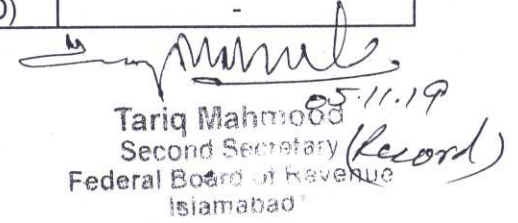 )
-
05.11.19
Tariq Mahmood
Second Secretary (Record)
Federal Board of Revenue
Islamabad